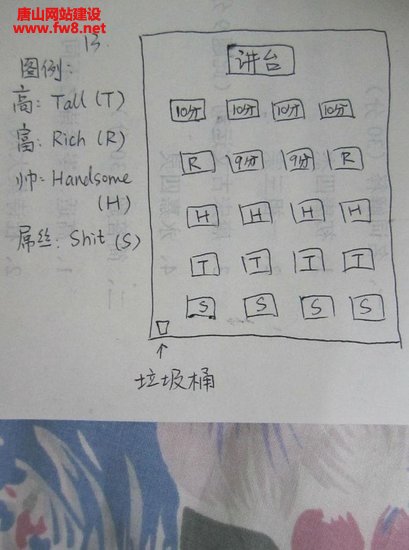 唐山网站建设
www.fw8.net
13
图例:
高: Tall (T)
富: Rich (R)
帅: Handsome
(H)
屌丝: Shit (S)
讲台
10分 10分 10分 10分
R 9分 9分 R
H H H H
T T T T
S S S S
垃圾桶